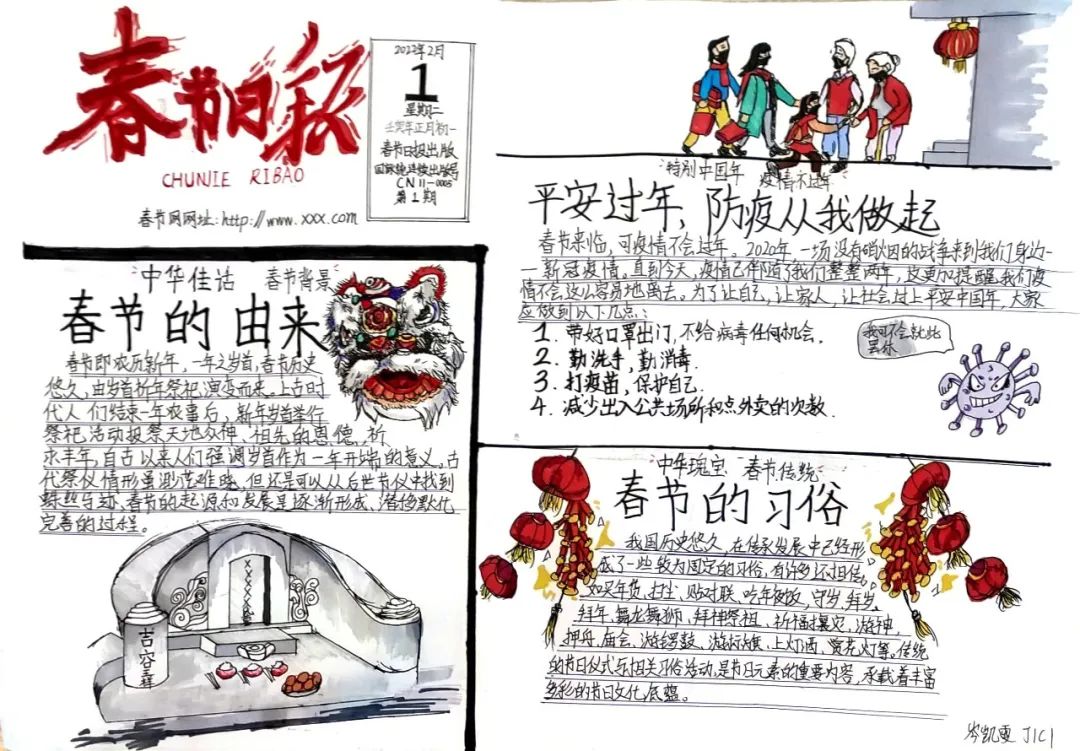 春节日报
CHUNJIE RIBAO
春节网网址:http://www.xxx.com
2022年2月
1
星期二
壬寅年正月初一
春节日报出版
国际统连续出版号
CN 11-0005
第1期
特别中国年 疫情不过年
平安过年,防疫从我做起
春节来临,可疫情不会过年。2020年,一场没有硝烟的战争来到我们身边-
-新冠疫情。直到今天,疫情已伴随了我们整整两年,这更加提醒我们疫
情不会这么容易地离去。为了让自己,让家人,让社会过上平安中国年,大家
应做到以下几点:
1. 带好口罩出门,不给病毒任何机会.
2. 勤洗手,勤消毒.
3. 打疫苗,保护自己.
4. 减少出入公共场所和点外卖的次数.
我可不会就此
罢休
中华佳话 春节背景
春节的由来
春节即农历新年,一年之岁首,春节历史
悠久,由岁首祈年祭祀演变而来。上古时
代人们结束一年农事后,新年岁首举行
祭祀活动报祭天地众神、祖先的恩德,祈
求丰年,自古以来人们强调岁首作为一年开端的意义。古
代祭仪情形虽渺茫难晓,但还是可以从后世节仪中找到
蛛丝马迹,春节的起源和发展是逐渐形成、潜移默化
完善的过程。
XXXX
吉谷祥
中华瑰宝 春节传统
春节的习俗
我国历史悠久,在传承发展中已经形
成了一些较为固定的习俗,有许多还相传,
如买年货、扫尘、贴对联、吃年夜饭、守岁、拜岁、
拜年、舞龙舞狮、拜神祭祖、祈福攘灾、游神、
押舟、庙会、游锣鼓、游标旗、上灯酒、赏花灯等。传统
的节日仪式与相关习俗活动,是节日元素的重要内容,承载着丰富
多彩的节日文化底蕴。
岑凯雯 J1C1